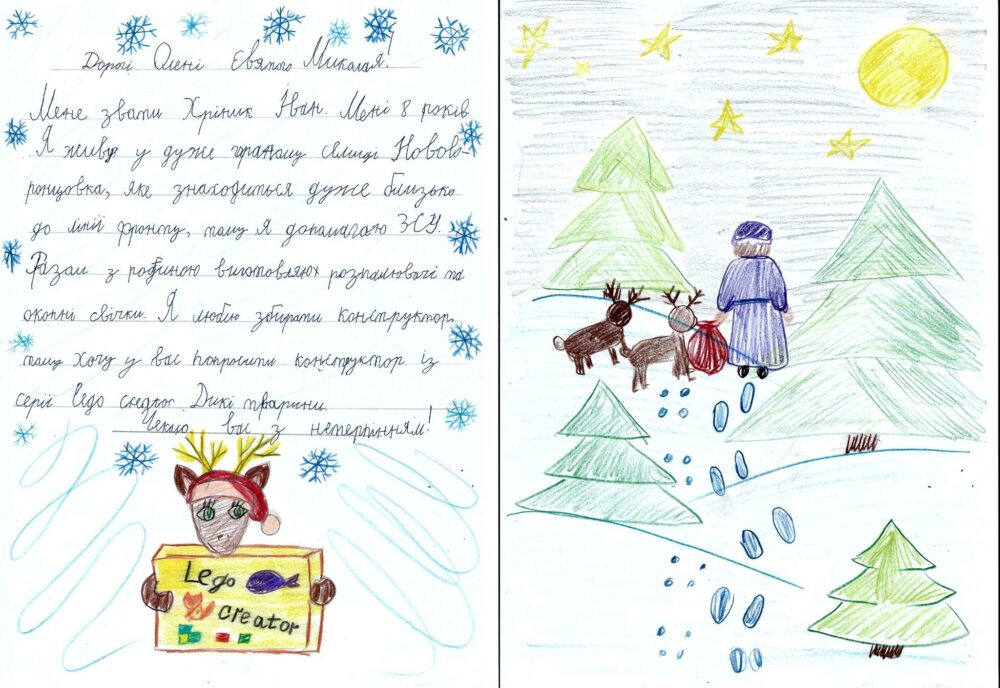 Дорогі Олені Святого Миколая!
Мене звати Хріник Іван. Мені 8 років
Я живу у дуже гарному селищі Нововo-
ронцовка, яке знаходиться дуже близько
до лінії фронту, тому я допомагаю ЗСУ.
Разом з родиною виготовляєм розпалювачі та
окопні свічки. Я люблю збирати конструктор,
тому хочу у вас попросити конструктор із
серії Lego creator. Дикі тварини.
Чекаю вас з нетерпінням!
Lego
creator